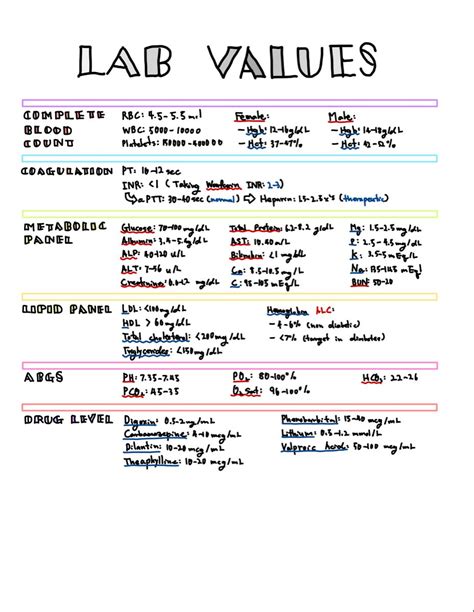 LAB VALUES
COMPLETE BLOOD COUNT
RBC: 4.5-5.5 mil
WBC: 5000-10000
Platelets:
Female:
- Hgb: 12-16g/dL
- Hct: 37-47%
Male:
- Hgb: 14-18g/dL
- Hct: 42-52%
COAGULATION
PT: 10-12 sec
INR: <1 (Taking Warfarin INR: 2-3)
aPTT: 30-40sec (normal) → Heparin: 1.5-2.5x's (therapeutic)
METABOLIC PANEL
Glucose: 70-100 mg/dL
Albumin: 3.4-5.4 g/dL
ALP: 40-120 u/L
ALT: 7-56 u/L
Creatinine:
Total Protein: 6.2-8.2 g/dL
AST: 10.40 n/L
Bilirubin: <1 mg/dL
Ca: 8.5-10.5 mg/L
C: 95-105 mEq/L
Mg: 1.5-2.5 mg/dL
P: 2.5-4.5 mg/dL
K: 3.5-5 mEq/L
Na: 135-145 mEq/L
BUN: 50-20
LIPID PANEL
LDL: <100 mg/dL
HDL > 60 mg/dL
Total cholesterol: <200 mg/dL
Triglycerides: <150 mg/dL
Hemoglobin A1C:
- 4-6% (non diabetic)
- <7% (target in diabetes)
ABGS
PH: 7.35-7.45
PCO₂: 45-35
PO₂: 80-100%
O₂ Sat: 96-100%
HCO₃: 22-26
DRUG LEVEL
Digoxin: 0.5-2 ng/mL
Carbamazepine: 4-10 mcg/mL
Dilantin: 10-20 mcg/mL
Theaphylline: 10-20 mcg/mL
Phenobarbital: 15-40 mcg/mL
Lithium: 0.5-1.2 mmol/L
Valproic Acid: 50-100 mcg/mL